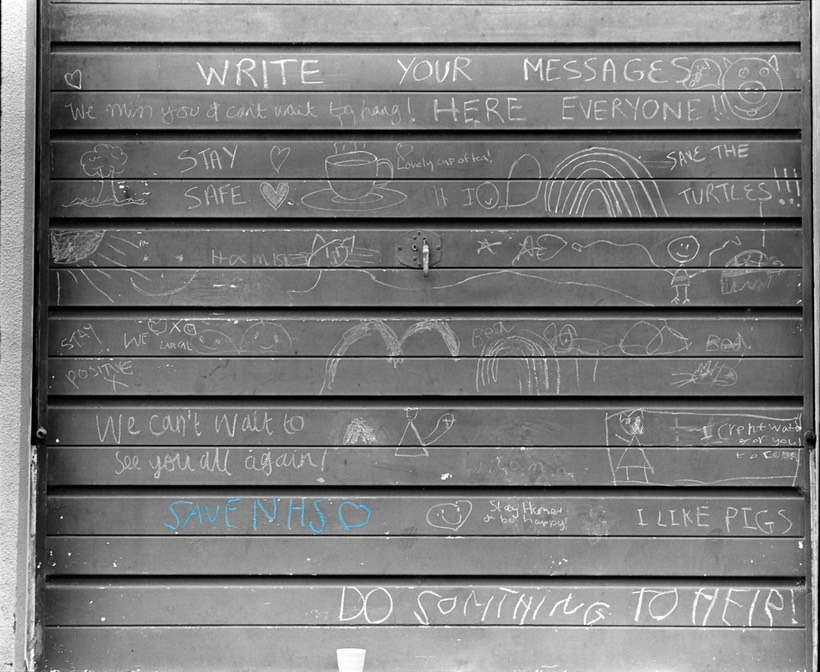 WRITE YOUR MESSAGES
We miss you & cant wait to hang! HERE EVERYONE!!
STAY Lovely cup of tea! SAVE THE
SAFE TURTLES!!!
Hamish
STAY WE Ben Ben
POSITIVE X
We can't wait to I crent wate
see you all again! for you
to come
SAVE NHS Stay Home I LIKE PIGS
& be happy!
DO SOMTHING TO HELP!